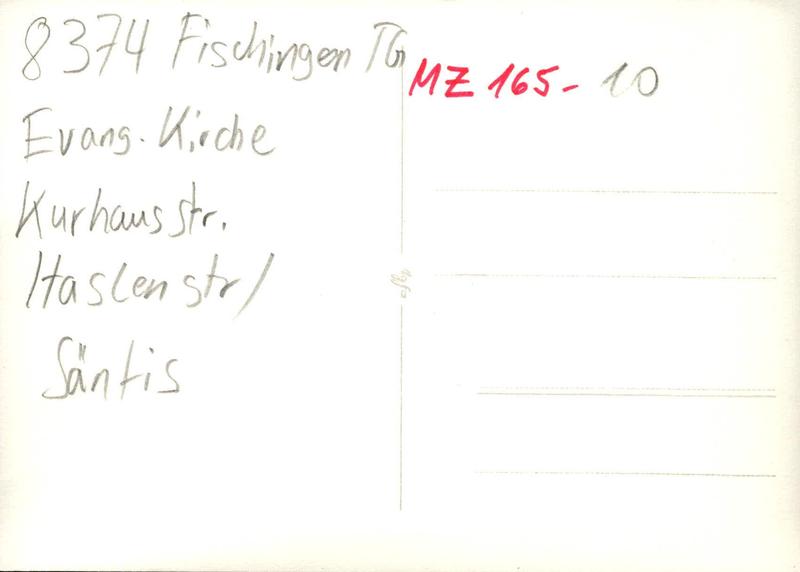 8374 Fischingen TG
MZ 165-10
Evang. Kirche
Kurhausstr.
Haslenstr/
Säntis
Agfa